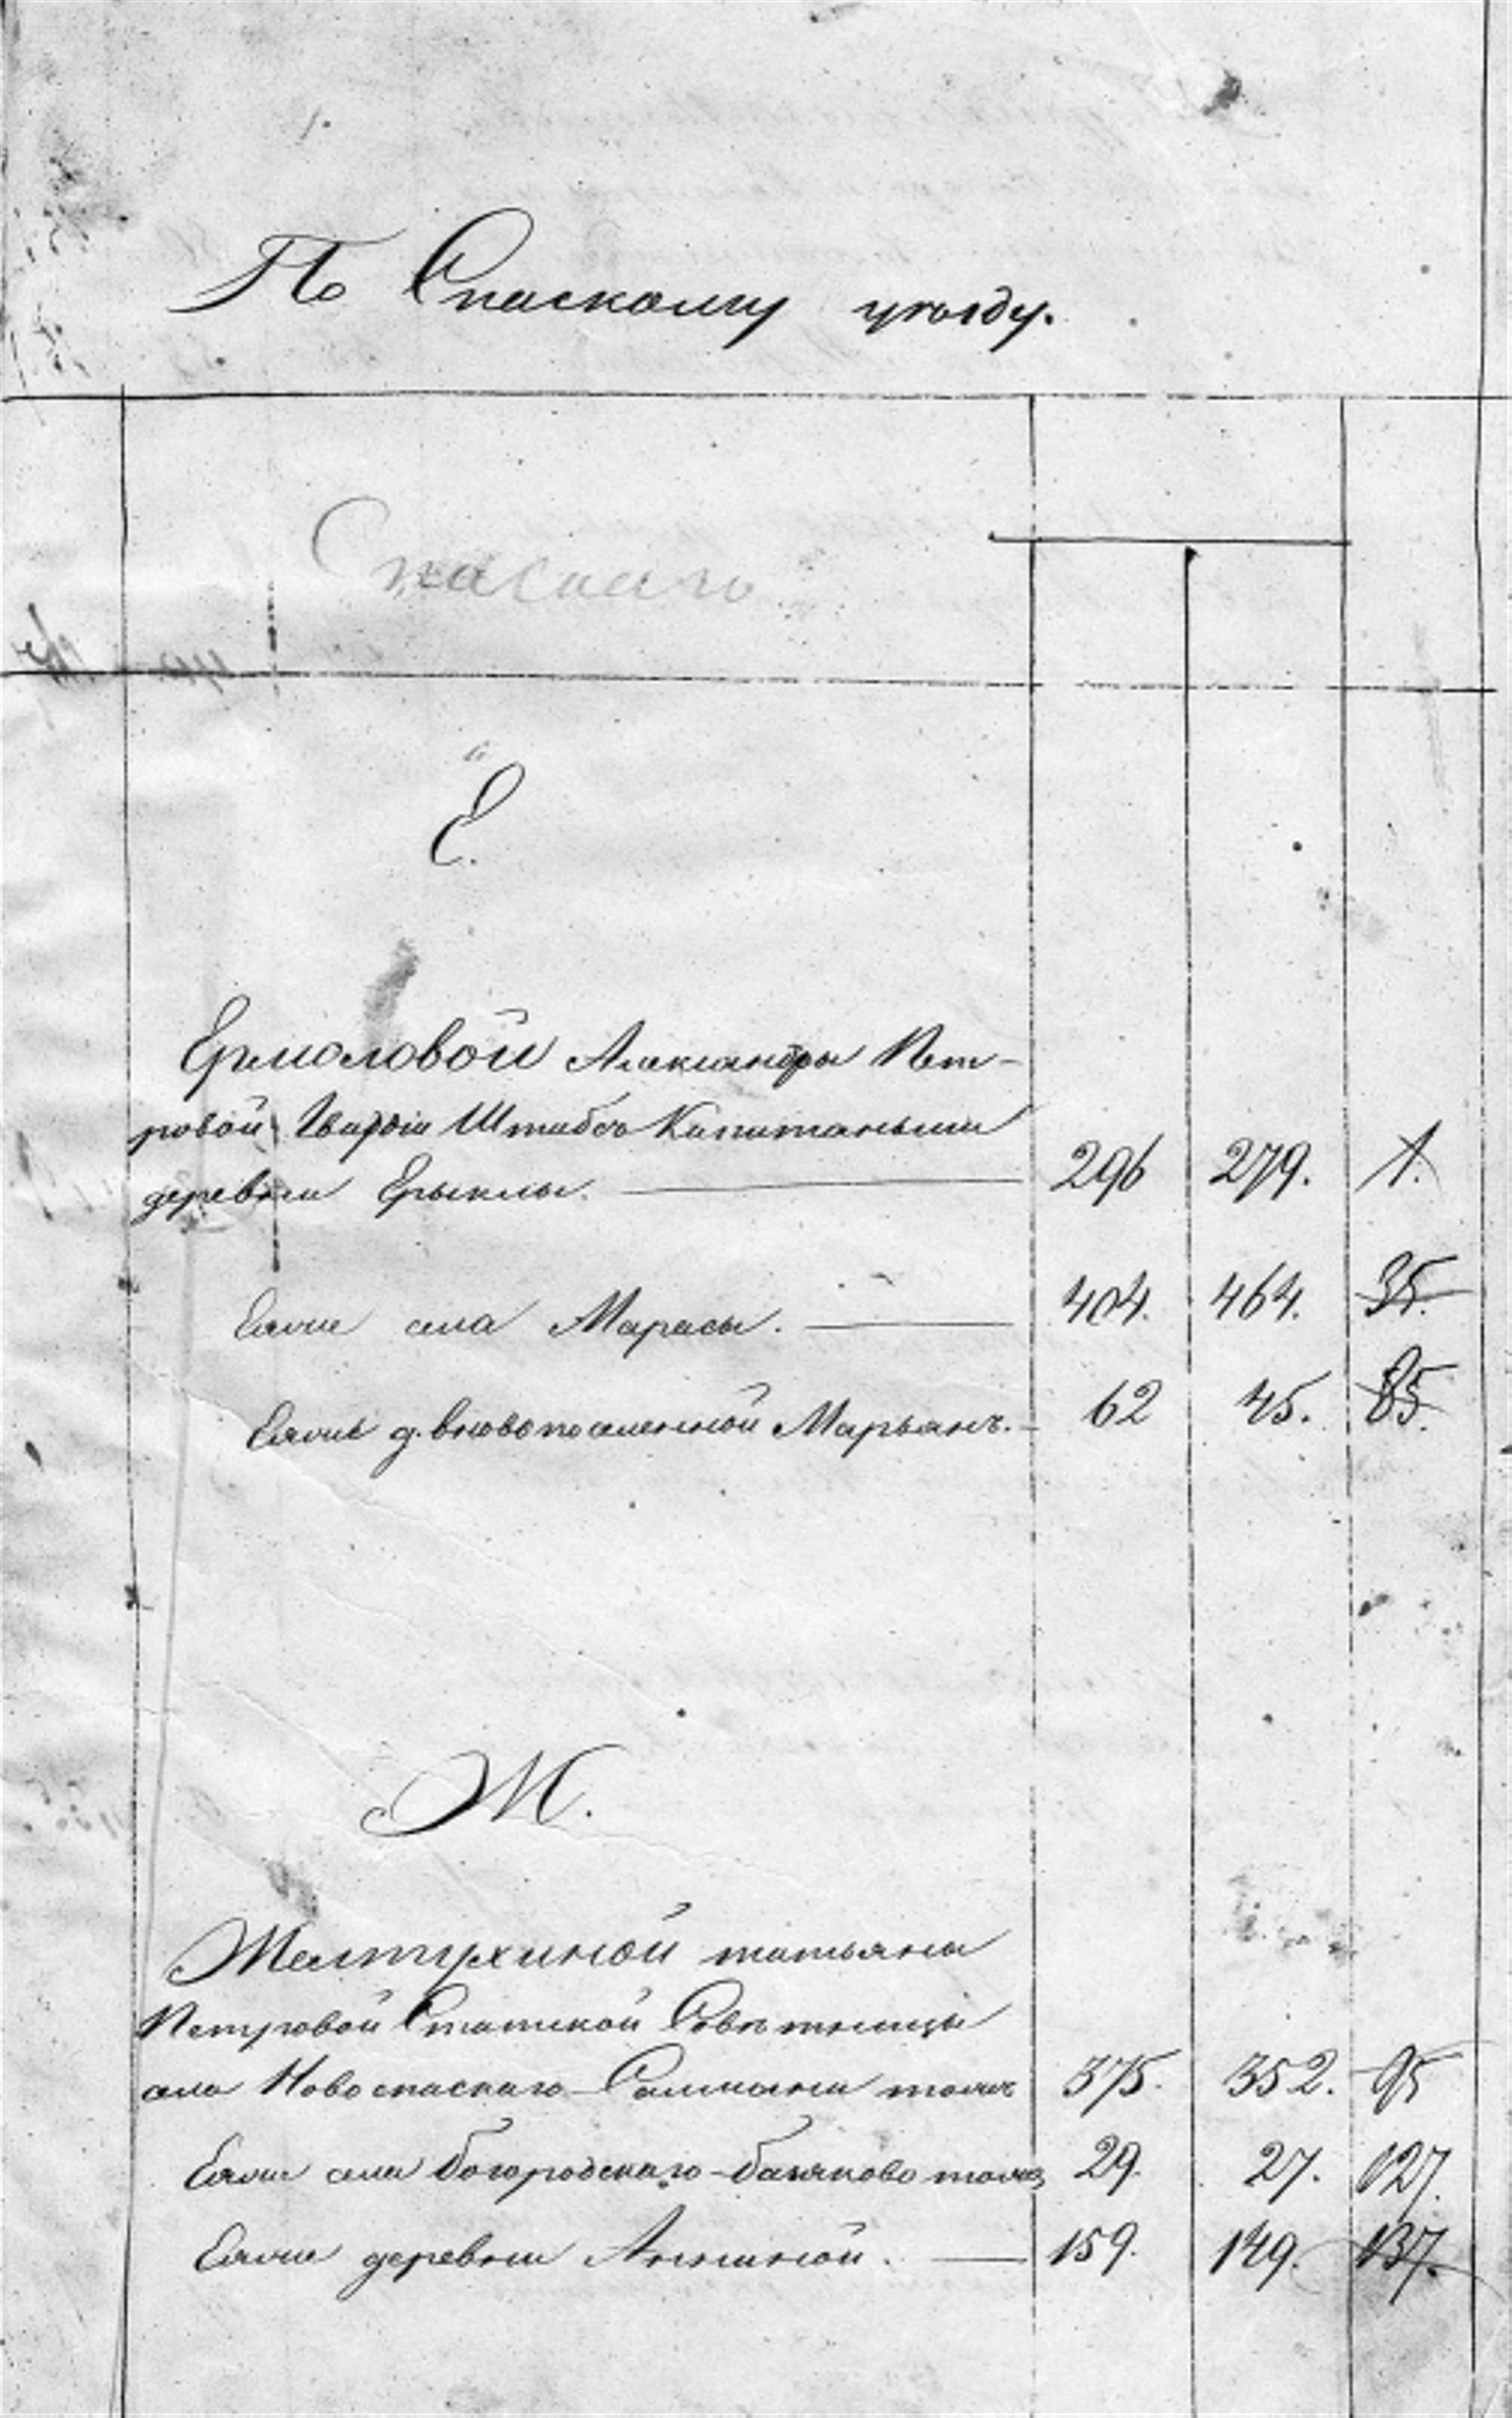 По Спаскому уѣзду.
Спаскаго
Е.
Ермоловой Александры Пет-
ровой Гвардiи Штабсъ Капитанши
деревни Ерыклы. 296 279. 1.
Ея же села Марасы. 404. 464. 35.
Ея же д. вновопоселенной Марьянъ. 62 45. 85.
Ж.
Желтухиной татьяны
Петровой Статской Совѣтницы
села Новоспаскаго - Салманы тожъ 375. 352. 95
Ея же села богородскаго - бальково тожъ 29. 27. 127.
Ея же деревни Анниной. 159. 149. 137.